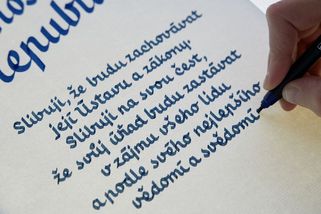 epubli
Slibuji, že budu zachovávat
její Ústavu a zákony.
Slibuji na svou čest,
že svůj úřad budu zastávat
v zájmu všeho lidu
a podle svého nejlepšího
vědomí a svědomí